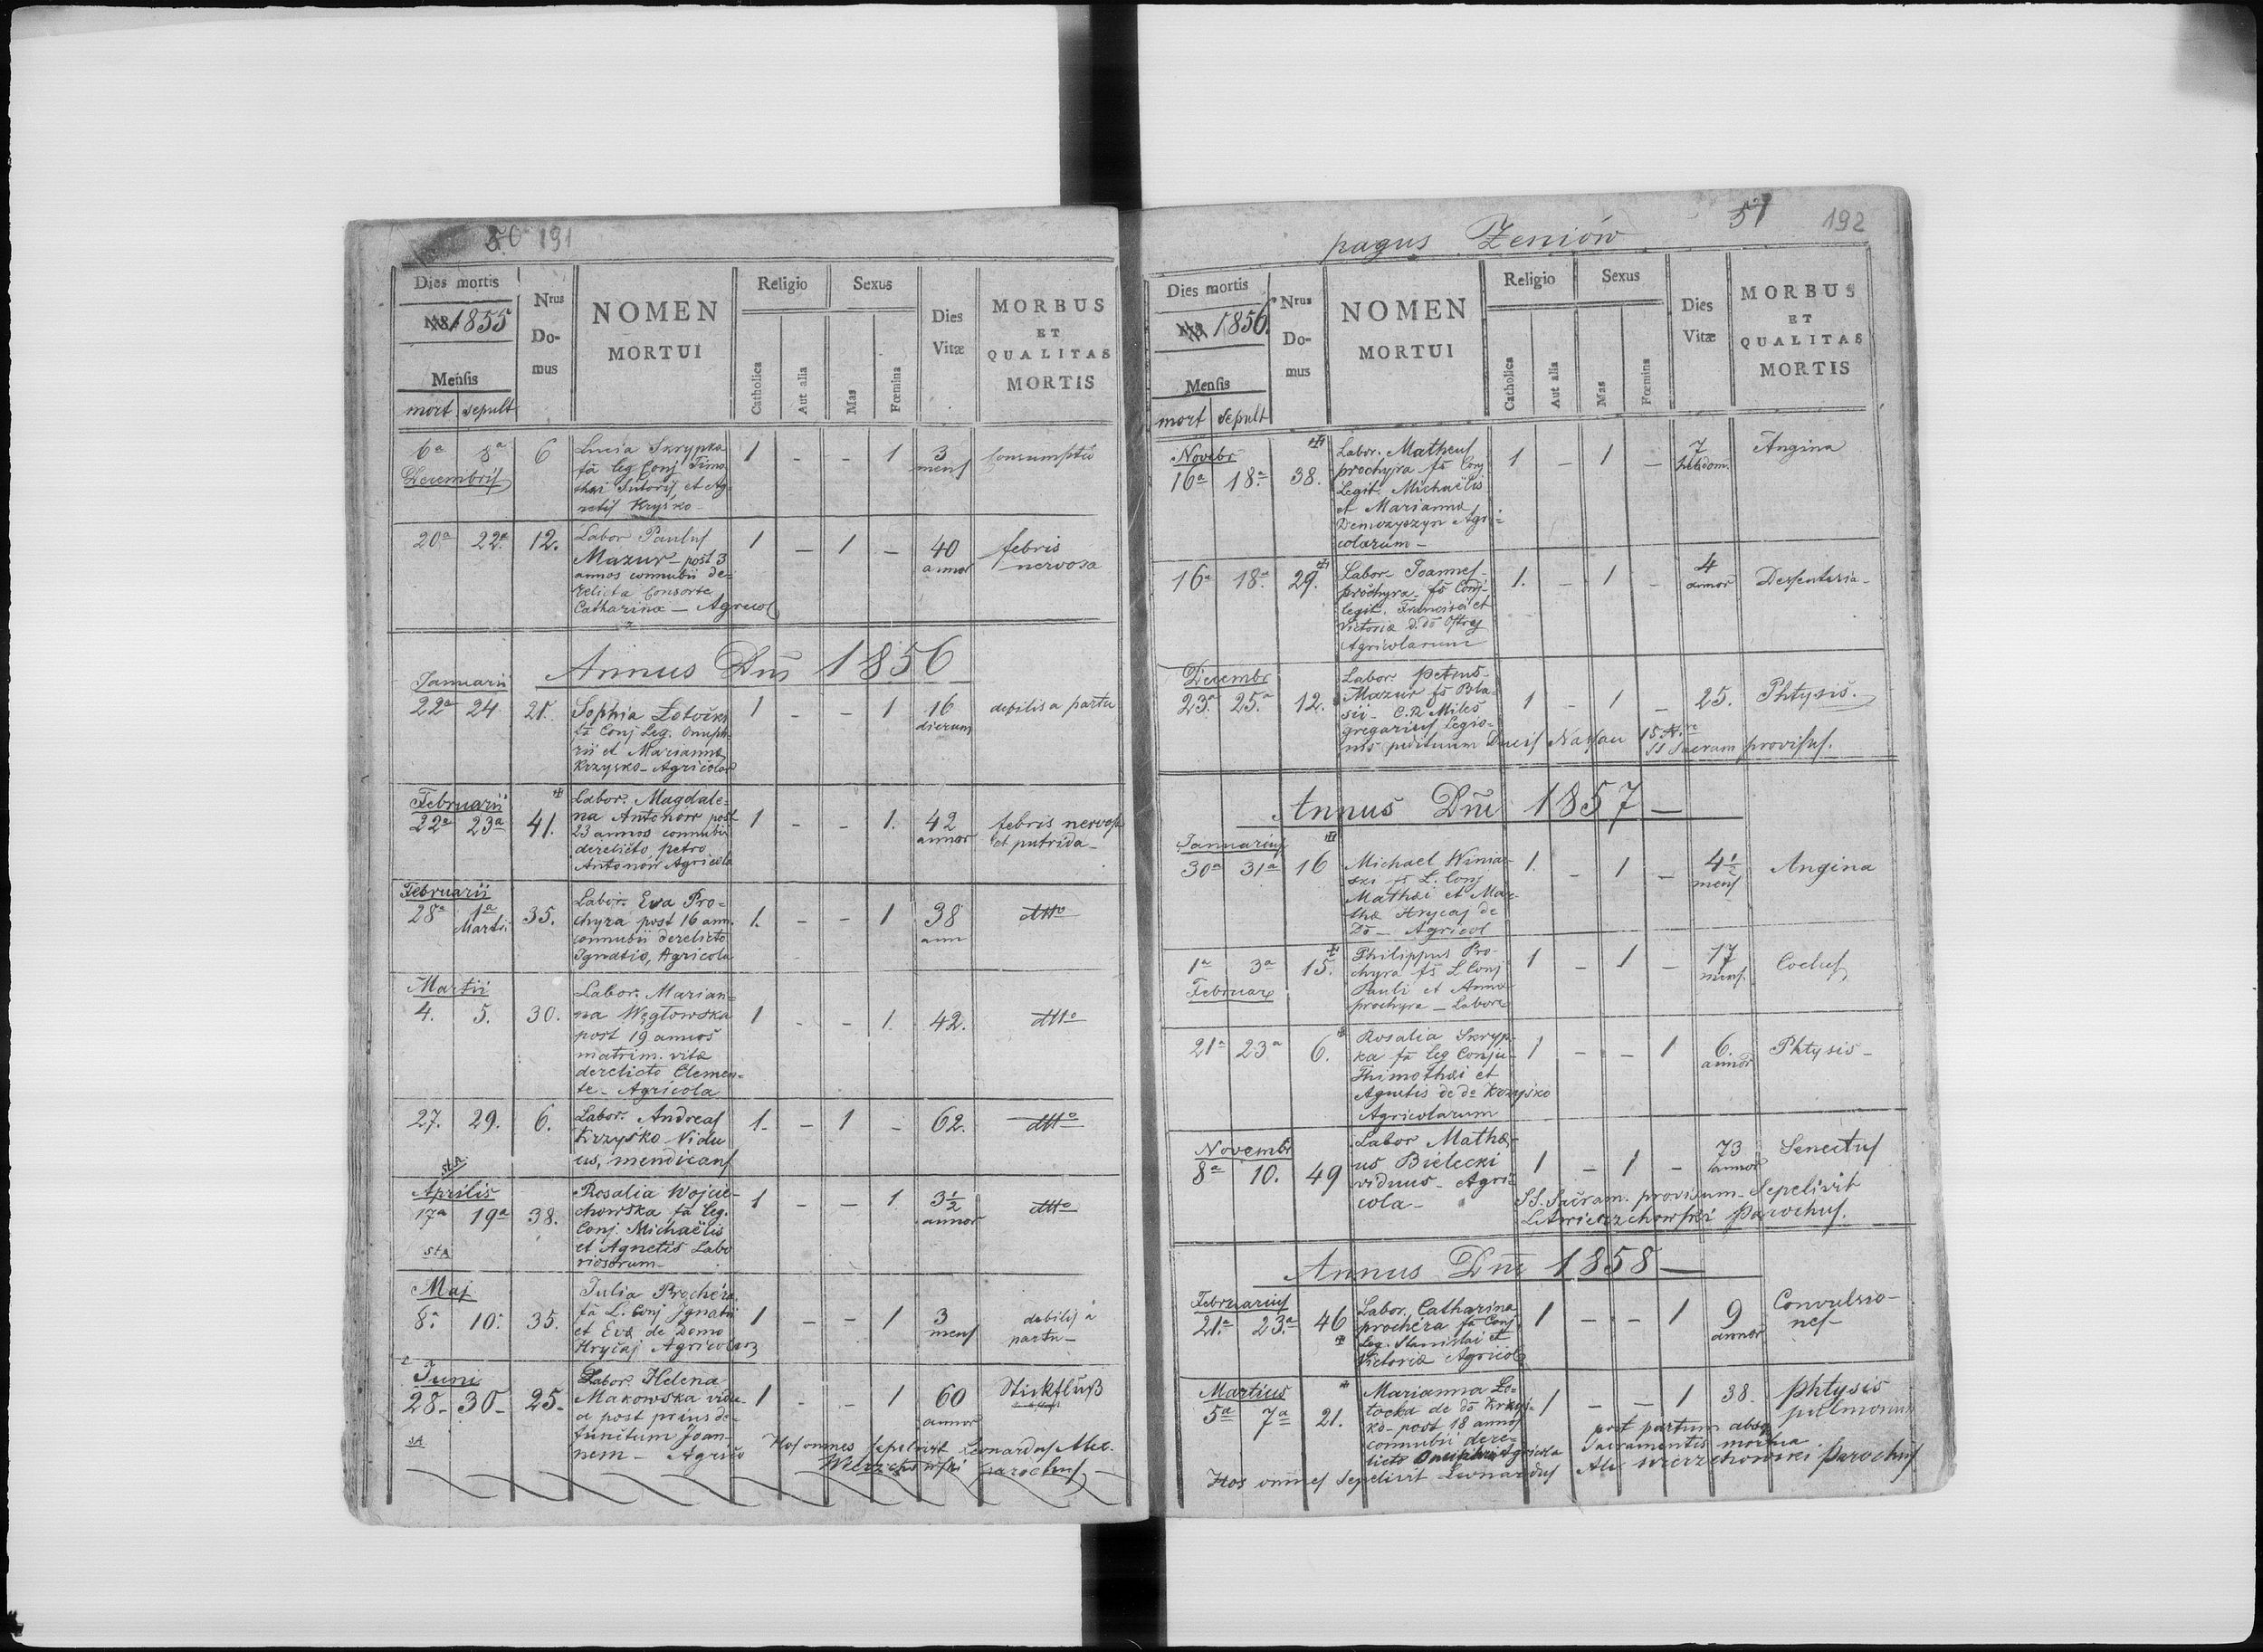 50 191
Dies mortis
1855
Mensis
mort. sepult
Nrus
Do-
mus
NOMEN
MORTUI
Religio
Catholica
Aut alia
Sexus
Mas
Fœmina
Dies
Vitæ
MORBUS
ET
QUALITAS
MORTIS
6a 8a 6 Lucia Skrypka 1 - - 1 3 Consumptio
Decembris fa leg Conj Timo mens
thæi Sutoris et Ag-
netis Kryśko-
20a 22a 12. Labor Paulus 1 - 1 - 40 febris
Mazur - post 3 annor nervosa
annos connubii de-
relicta Consorte
Catharina - Agricol
Annus Dni 1856
Januarii
22a 24 21. Sophia 1 - - 1 16 debilis a partu
fa Conj Leg. Onuph- dierum
rii et Marianna
Krzysko - Agricolar
Februarii Labor. Magdale-
22a 23a 41. na Antonów post 1 - - 1. 42 febris nervosa
23 annos connubii annor et putrida-
derelicto petro
Antonów Agricola
Februarii Labor. Eva Pro-
28a 1a 35. chyra post 16 ann. 1. - - 1 38 dtto
Martii connubii derelicto ann
Ignatio, Agricola
Martii Labor. Marian-
4. 5. 30. na Węgłowska 1 - - 1. 42. dtto
post 19 annos
matrim. vitæ
derelicto Clemen-
te - Agricola
27. 29. 6. Labor. Andreas 1. - 1 - 62. dtto
Krzyśko Vidu
us, mendicans
Aprilis Rosalia Wojcie-
17a 19a 38. chowska fa leg. 1 - - 1 3½ dtto
Conj. Michaëlis annor
et Agnetis Labo
riosorum-
Maj Julia Prochéra
8a 10. 35. fa L. Conj Ignatii 1 - - 1 3 debilis a
et Eva de Domo mens partu-
Hryćaj Agricolarum
Juni Labor. Helena
28- 30- 25- Makowska vidu- 1 - - 1 60 Stickfluß
a post prius de- annor
functum Joan-
nem - Agrico Hos omnes sepelivit Leonardus
Wierzchowski parochus
pagus Zeniów 51 192
Dies mortis
1856.
Mensis
mort sepult
Nrus
Do-
mus
NOMEN
MORTUI
Religio
Catholica
Aut alia
Sexus
Mas
Fœmina
Dies
Vitæ
MORBUS
ET
QUALITAS
MORTIS
Novebr Labor. Matheus
16a 18a 38. prochyra fs Conj 1 - 1 - 7 Angina
Legit. Michaëlis hebdom.
et Marianna
Agri-
colarum-
16a 18a 29. Labor Joannes 1. - 1 - 4
prochyra fs Conj annor
legit. Francisci et
Victoria
Agricolarum
Decembr Labor petrus
23a 25a 12. Mazur fs Bla- 1 - 1 - 25. Phtysis.
sii - C.R. Miles
gregarius Legio-
nis peditum Ducis Nassau 15
SS Sacram provisus.
Annus Dni 1857-
Januarius
30a 31a 16 Michael Winiar- 1. - 1 - 4½ Angina
ski fs L. Conj mens
Mathæi et Mar-
tha Hrycaj de
Do - Agricol
1a 3a 15. Philippus Pro- 1 - 1 - 17
Februar chyra fs L Conj mens.
Pauli et Anna
prochyra - Labor
21a 23a 6. Rosalia Skryp- 1 - - 1 6. Phtysis-
ka fa leg Conju- annor
Thimothæi et
Agnetis de do Krzyśko
Agricolarum
Novembr Labor Mathæ-
8a 10. 49 us Bielecki 1 - 1 - 73 Senectus
viduus - Agri- annor
cola- SS. Sacram. provisum - Sepelivit
Parochus.
Annus Dni 1858-
Februarius Labor. Catharina
21.a 23.a 46 prochéra fa Conj 1 - - 1 9 Convulsio-
leg. Stanislai et annor nes-
Victoria Agricol
Martius Marianna Lo-
5a 7a 21. tocka de do Krzyś- 1 - - 1 38. phtysis
ko - post 18 annos pulmonum
connubii dere- post partum absq
licto Agricola Sacramentis mortua
Hos omnes sepelivit Leonardus Wierzchowski Parochus